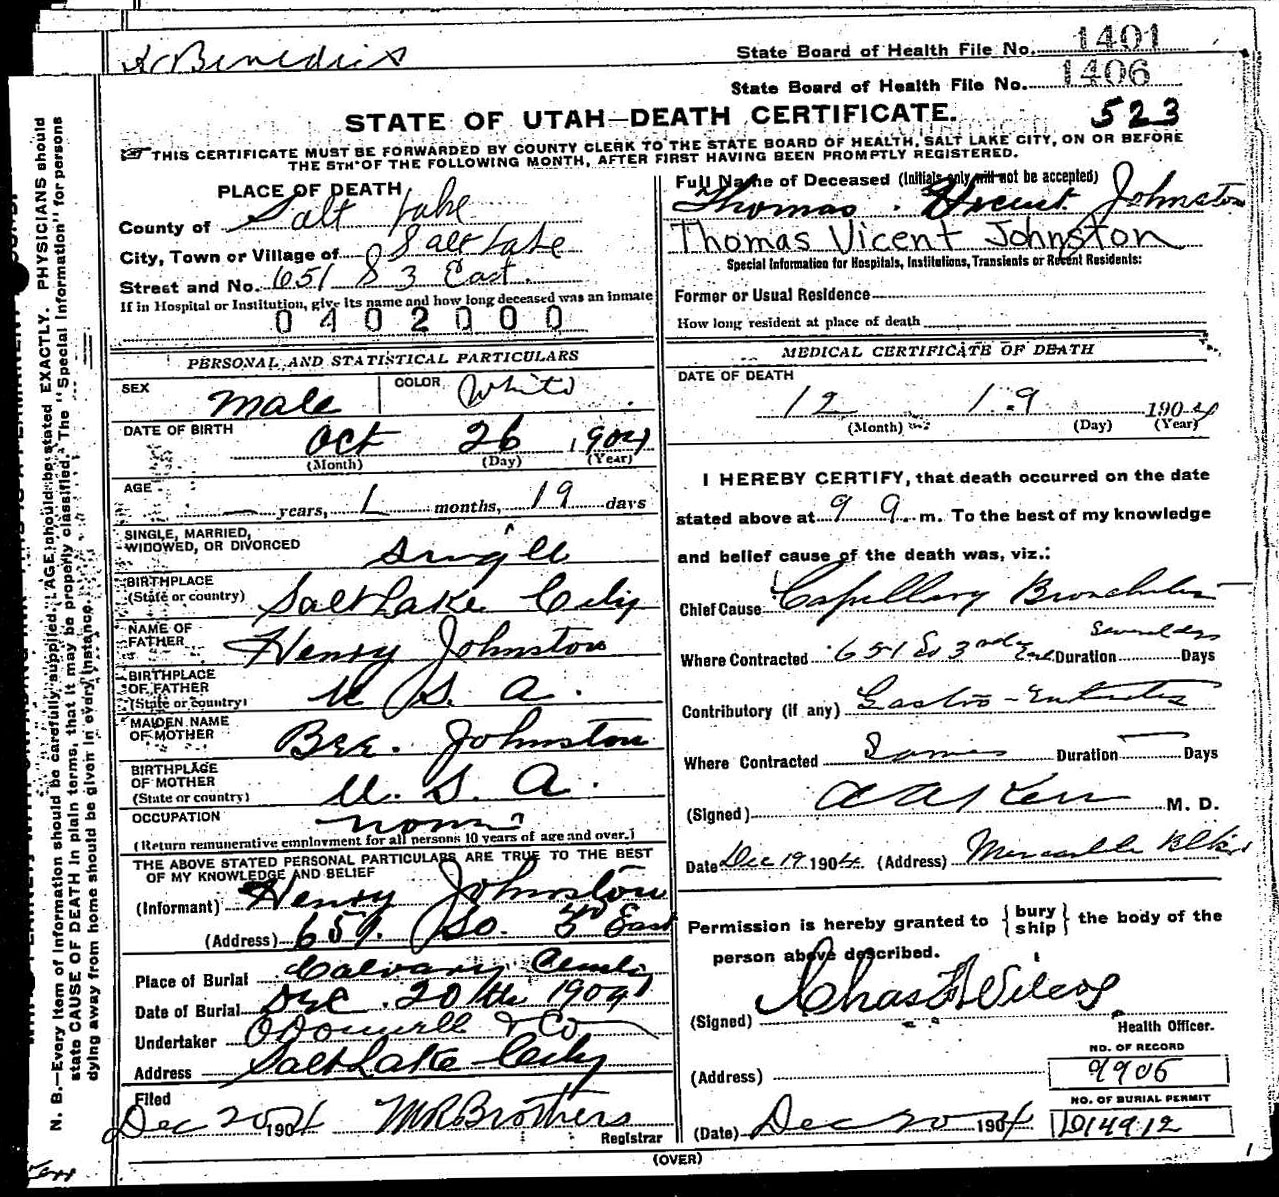 State Board of Health File No. 1401
State Board of Health File No. 1406
523
STATE OF UTAH—DEATH CERTIFICATE.
THIS CERTIFICATE MUST BE FORWARDED BY COUNTY CLERK TO THE STATE BOARD OF HEALTH, SALT LAKE CITY, ON OR BEFORE
THE 5TH OF THE FOLLOWING MONTH, AFTER FIRST HAVING BEEN PROMPTLY REGISTERED.
PLACE OF DEATH
County of Salt Lake
City, Town or Village of Salt Lake
Street and No. 651 S 3 East
If in Hospital or Institution, give its name and how long deceased was an inmate
0402000
PERSONAL AND STATISTICAL PARTICULARS
SEX Male COLOR White
DATE OF BIRTH Oct 26 1904
(Month) (Day) (Year)
AGE — years, 1 months, 19 days
SINGLE, MARRIED,
WIDOWED, OR DIVORCED Single
BIRTHPLACE
(State or country) Salt Lake City
NAME OF
FATHER Henry Johnston
BIRTHPLACE
OF FATHER
(State or country) U S. A.
MAIDEN NAME
OF MOTHER Bee. Johnston
BIRTHPLACE
OF MOTHER
(State or country) U. S. A.
OCCUPATION none
(Return remunerative employment for all persons 10 years of age and over.)
THE ABOVE STATED PERSONAL PARTICULARS ARE TRUE TO THE BEST
OF MY KNOWLEDGE AND BELIEF
(Informant) Henry Johnston
(Address) 651. So. 3rd East
Place of Burial Calvary
Date of Burial Dec. 20th 1904
Undertaker O'Donnell & Co
Address Salt Lake City
Filed
Dec 20 1904 M R Brothers
Registrar
Full Name of Deceased (Initials only will not be accepted)
Thomas Johnston
Thomas Vicent Johnston
Special Information for Hospitals, Institutions, Transients or Recent Residents:
Former or Usual Residence
How long resident at place of death
MEDICAL CERTIFICATE OF DEATH
DATE OF DEATH
12 19 1904
(Month) (Day) (Year)
I HEREBY CERTIFY, that death occurred on the date
stated above at 9 a. m. To the best of my knowledge
and belief cause of the death was, viz.:
Chief Cause Capillary Bronchitis
Where Contracted 651 So 3rd East Duration Several Days
Contributory (if any) Gastro-Enteritis
Where Contracted Same Duration — Days
(Signed) M. D.
Date Dec 19 1904. (Address)
Permission is hereby granted to {bury ship} the body of the
person above described.
(Signed) Chas F Wilcox
Health Officer.
(Address)
NO. OF RECORD
9906
NO. OF BURIAL PERMIT
D14912
(Date) Dec 20 1904
(OVER)
N. B.—Every item of information should be carefully supplied. AGE should be stated EXACTLY. PHYSICIANS should
state CAUSE OF DEATH in plain terms, that it may be properly classified. The "Special Information" for persons
dying away from home should be given in every instance.